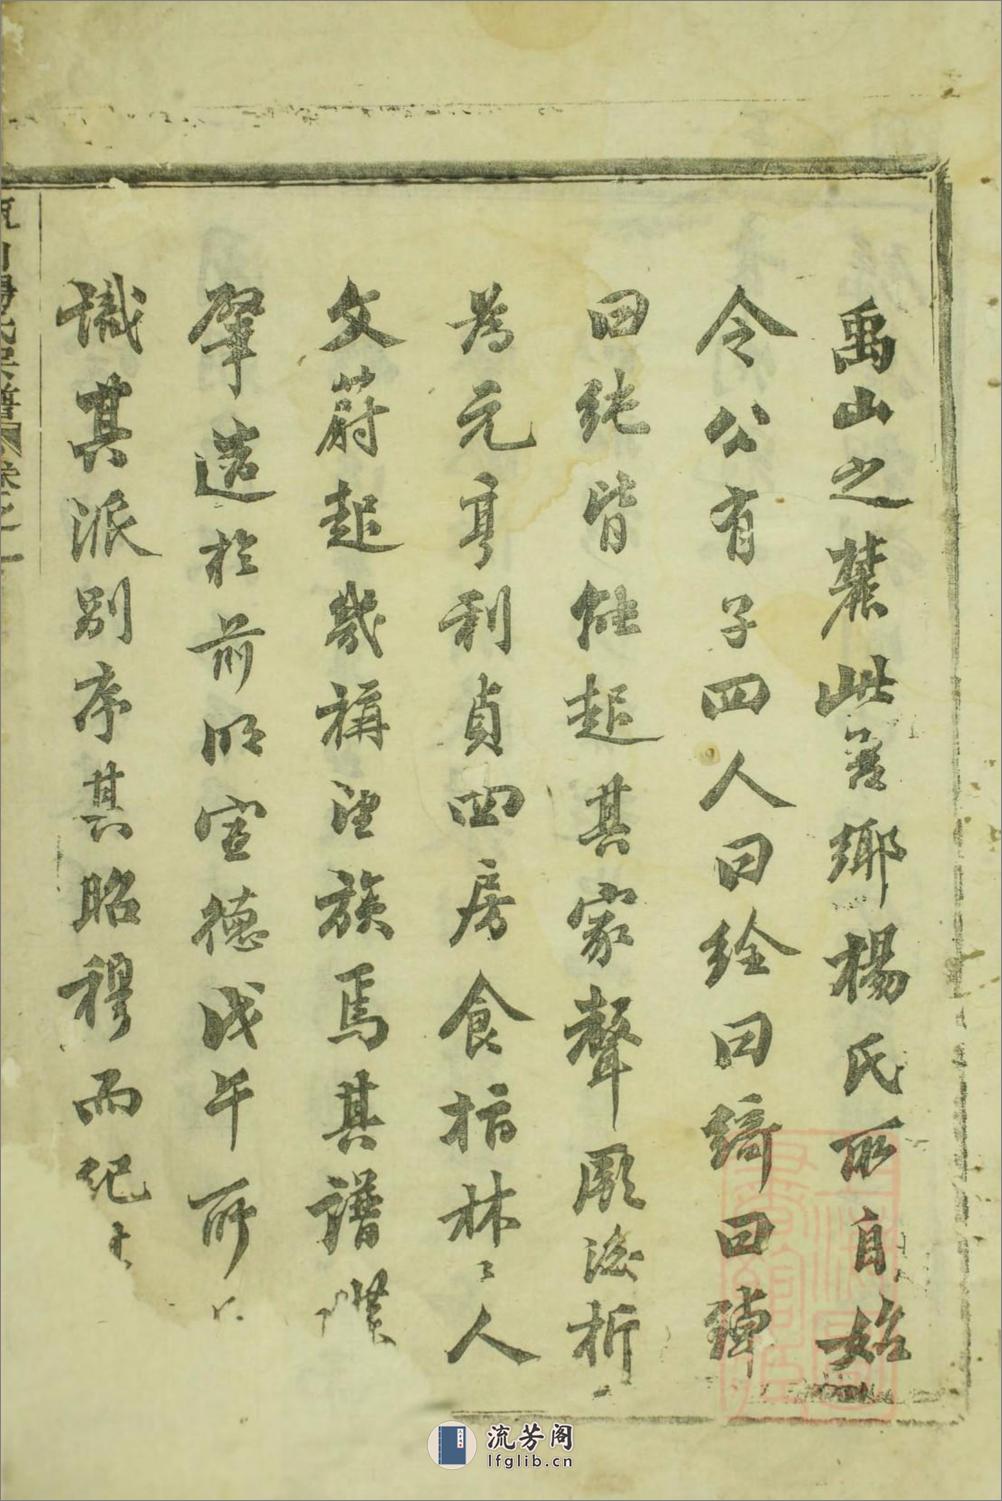 禹山之麓此吾鄉楊氏所自始
令公有子四人曰絟曰綺曰綽
曰純皆能起其家聲厥後析
為元亨利貞四房食指林〻人
文蔚起哉稱望族焉其譜牒
肇造於前明宣德戊午所
識其派別序其昭穆而紀
楊氏吳譜 卷之一
流芳阁
lfglib.cn